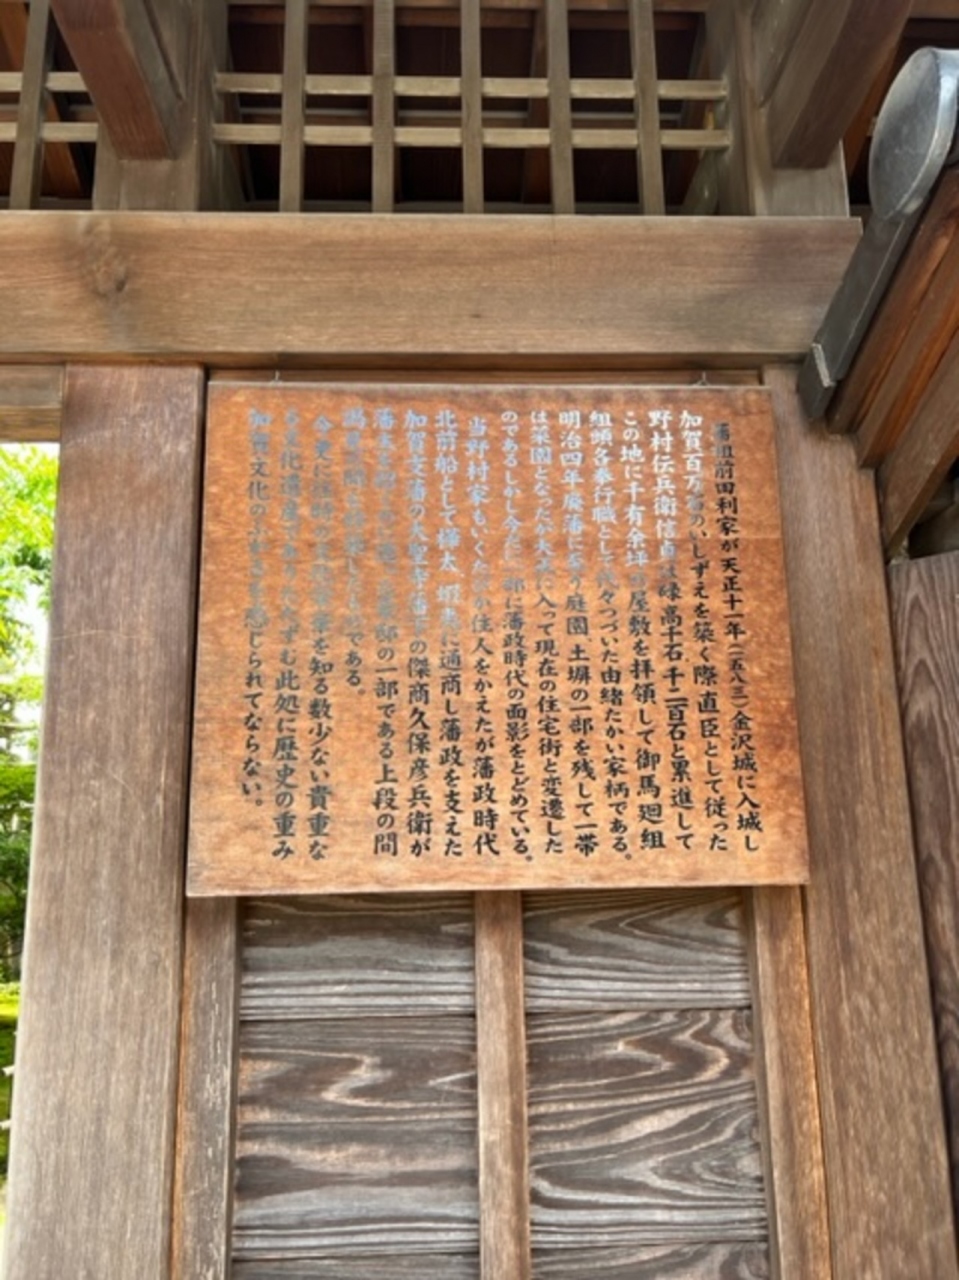 藩祖前田利家が天正十一年(一五八三)金沢城に入城し
加賀百万石のいしずえを築く際直臣として従った
野村伝兵衛信貞は禄高千石千二百石と累進して
この地に千有余坪の屋敷を拝領して御馬廻組
組頭各奉行職として代々つづいた由緒たかい家柄である。
明治四年廃藩に より庭園、土塀の一部を残して一帯
は菜園となったが大正に入って現在の住宅街と変遷した
のであるしかし今なお一部に藩政時代の面影をとどめている。
当野村家もいくたびか住人をかえたが藩政時代
北前船として樺太、蝦夷に通商し藩政を支えた
加賀支藩の大聖寺藩士の傑商久保彦兵衛が
藩主を 部の一部である上段の間
謁見の間を移築したものである。
今更に往時の を知る数少ない貴重な
る文化遺産でありたたずむ此処に歴史の重み
加賀文化の を感じられてならない。